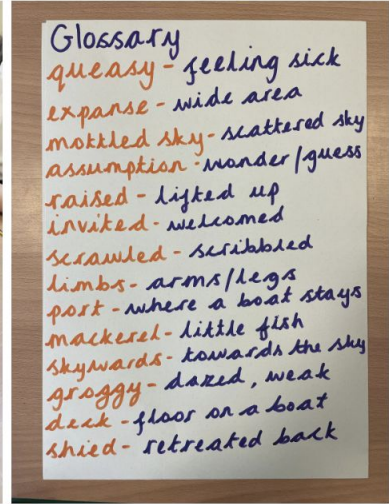 Glossary
queasy - feeling sick
expanse - wide area
mottled sky - scattered sky
assumption - wonder/guess
raised - lifted up
invited - welcomed
scrawled - scribbled
limbs - arms/legs
port - where a boat stays
mackerel - little fish
skywards - towards the sky
groggy - dazed, weak
deck - floor on a boat
shied - retreated back